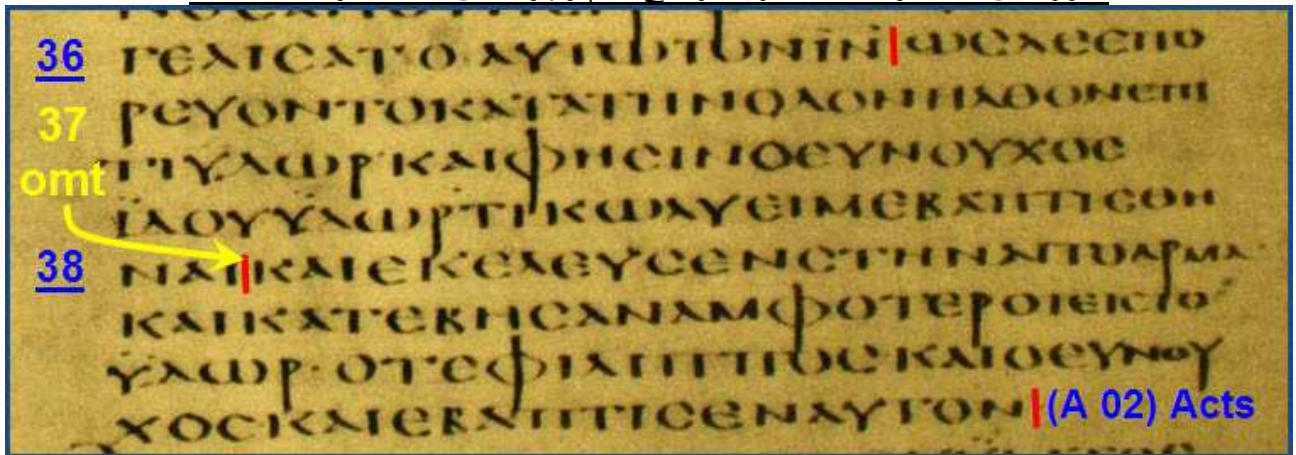 36 ΓΕΛΙCΑΤΟΑΥΤΩΤΟΝΙ̅Ν̅ | ΩCΔΕΕΠΟ
ΡΕΥΟΝΤΟΚΑΤΑΤΗΝΟΔΟΝΗΛΘΟΝΕΠΙ
37 omt ΤΙΥΔΩΡΚΑΙΦΗCΙΝΟΕΥΝΟΥΧΟC
ΪΔΟΥΫΔΩΡΤΙΚΩΛΥΕΙΜΕΒΑΠΤΙCΘΗ
38 ΝΑΙ | ΚΑΙΕΚΕΛΕΥCΕΝCΤΗΝΑΙΤΟΑΡΜΑ
ΚΑΙΚΑΤΕΒΗCΑΝΑΜΦΟΤΕΡΟΙΕΙCΤΟ
ΫΔΩΡ·ΟΤΕΦΙΛΙΠΠΟCΚΑΙΟΕΥΝΟΥ
ΧΟCΚΑΙΕΒΑΠΤΙCΕΝΑΥΤΟΝ | (A 02) Acts